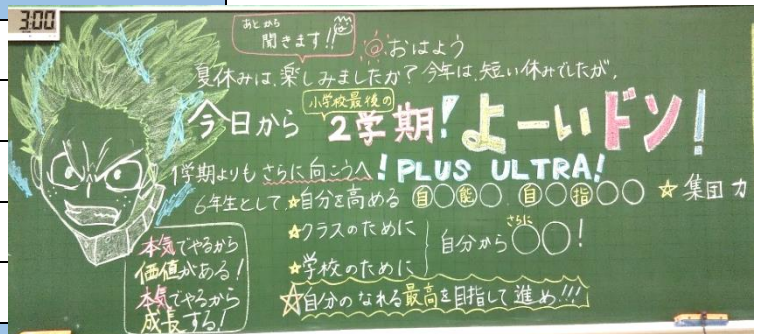 3:00
あとから
聞きます!!
おはよう
夏休みは、楽しみましたか?今年は、短い休みでしたが、
小学校最後の
今日から 2学期!よーいドン!
1学期よりもさらに向こうへ!PLUS ULTRA!
6年生として、☆自分を高める 自○能○ 自○指○○ ☆集団力
☆クラスのために
☆学校のために
さらに
自分から○○!
☆自分のなれる最高を目指して進め!!!
本気でやるから
価値がある!
本気でやるから
成長する!